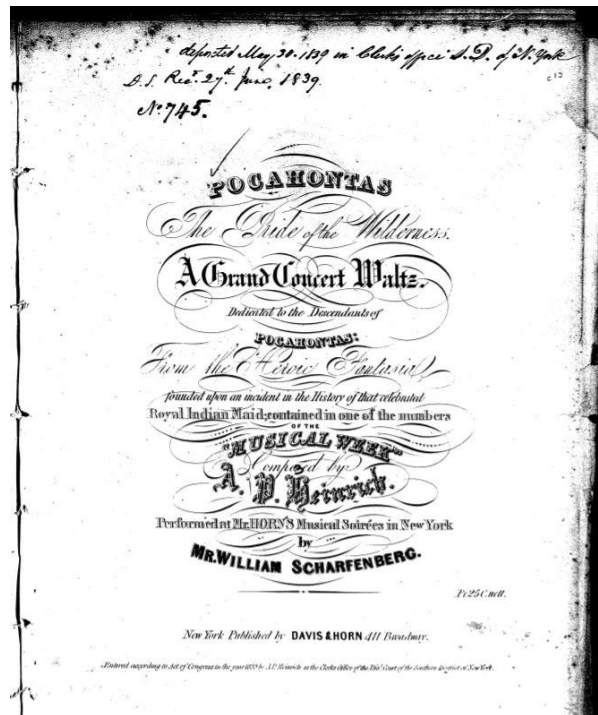 deposited May 30. 1839 in Clerks office S.D. of N. York
D.S. Rec.^d 27.^th June, 1839.
No. 745.
POCAHONTAS
The Pride of the Wilderness.
A Grand Concert Waltz.
Dedicated to the Descendants of
POCAHONTAS:
From the Heroic Fantasia,
founded upon an incident in the History of that celebrated
Royal Indian Maid; contained in one of the numbers
OF THE
"MUSICAL WEEK"
Composed by
A. P. Heinrich.
Performed at Mr. HORN'S Musical Soirées in New York
by
MR. WILLIAM SCHARFENBERG.
Pr 25 C. nett.
New York Published by DAVIS & HORN 411 Broadway.
Entered according to Act of Congress in the year 1839 by A.P. Heinrich in the Clerks Office of the Dist. Court of the Southern District of New York.